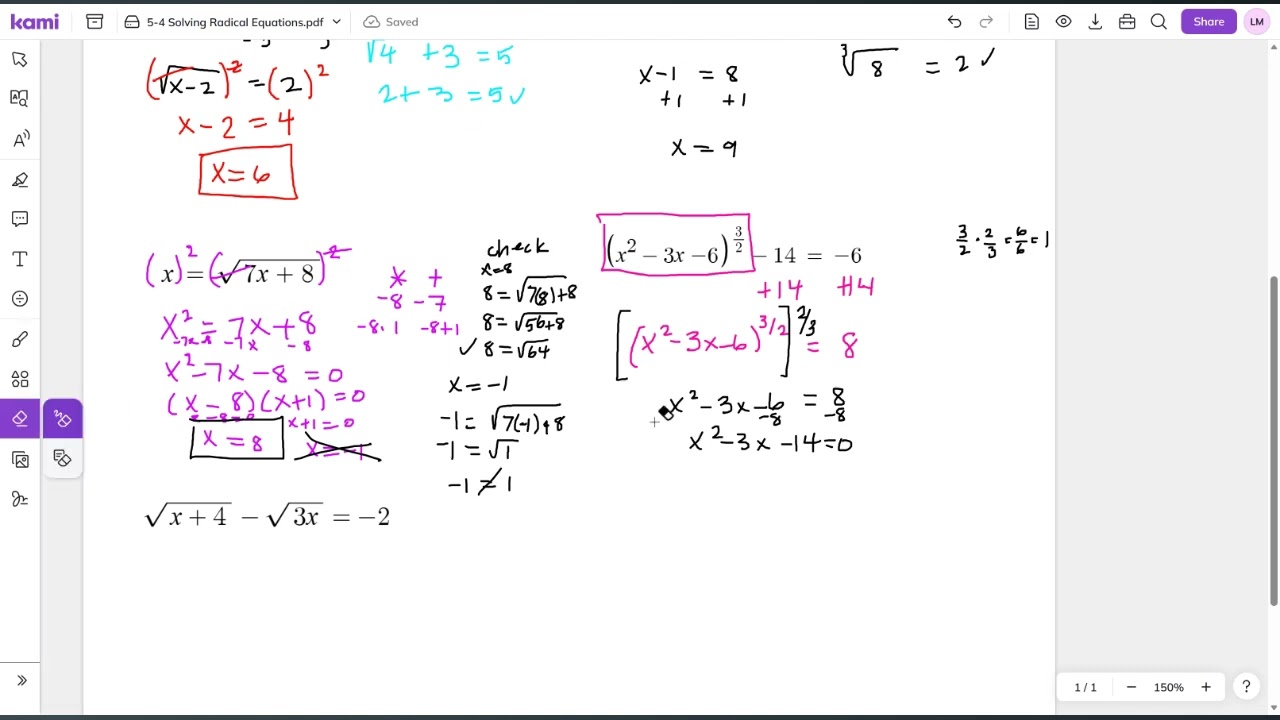 kami
5-4 Solving Radical Equations.pdf
Saved
Share
LM
√4 + 3 = 5
2 + 3 = 5 ✓
(√x-2)² = (2)²
x - 2 = 4
x = 6
x - 1 = 8
+1 +1
x = 9
∛8 = 2 ✓
(x)² = (√7x + 8)²
x² = 7x + 8
-7x -8 -7x -8
x² - 7x - 8 = 0
(x - 8)(x + 1) = 0
x + 1 = 0
x = 8
x = -1
* +
-8 -7
-8·1 -8+1
check
x=8
8 = √7(8)+8
8 = √56+8
✓ 8 = √64
x = -1
-1 = √7(-1)+8
-1 = √1
-1 ≠ 1
(x² − 3x − 6)^(3/2) − 14 = −6
+14 +14
[(x² - 3x - 6)^(3/2)]^(2/3) = 8
x² - 3x - 6 = 8
-8 -8
x² - 3x - 14 = 0
3/2 · 2/3 = 6/6 = 1
√x + 4 − √3x = −2
1 / 1
150%